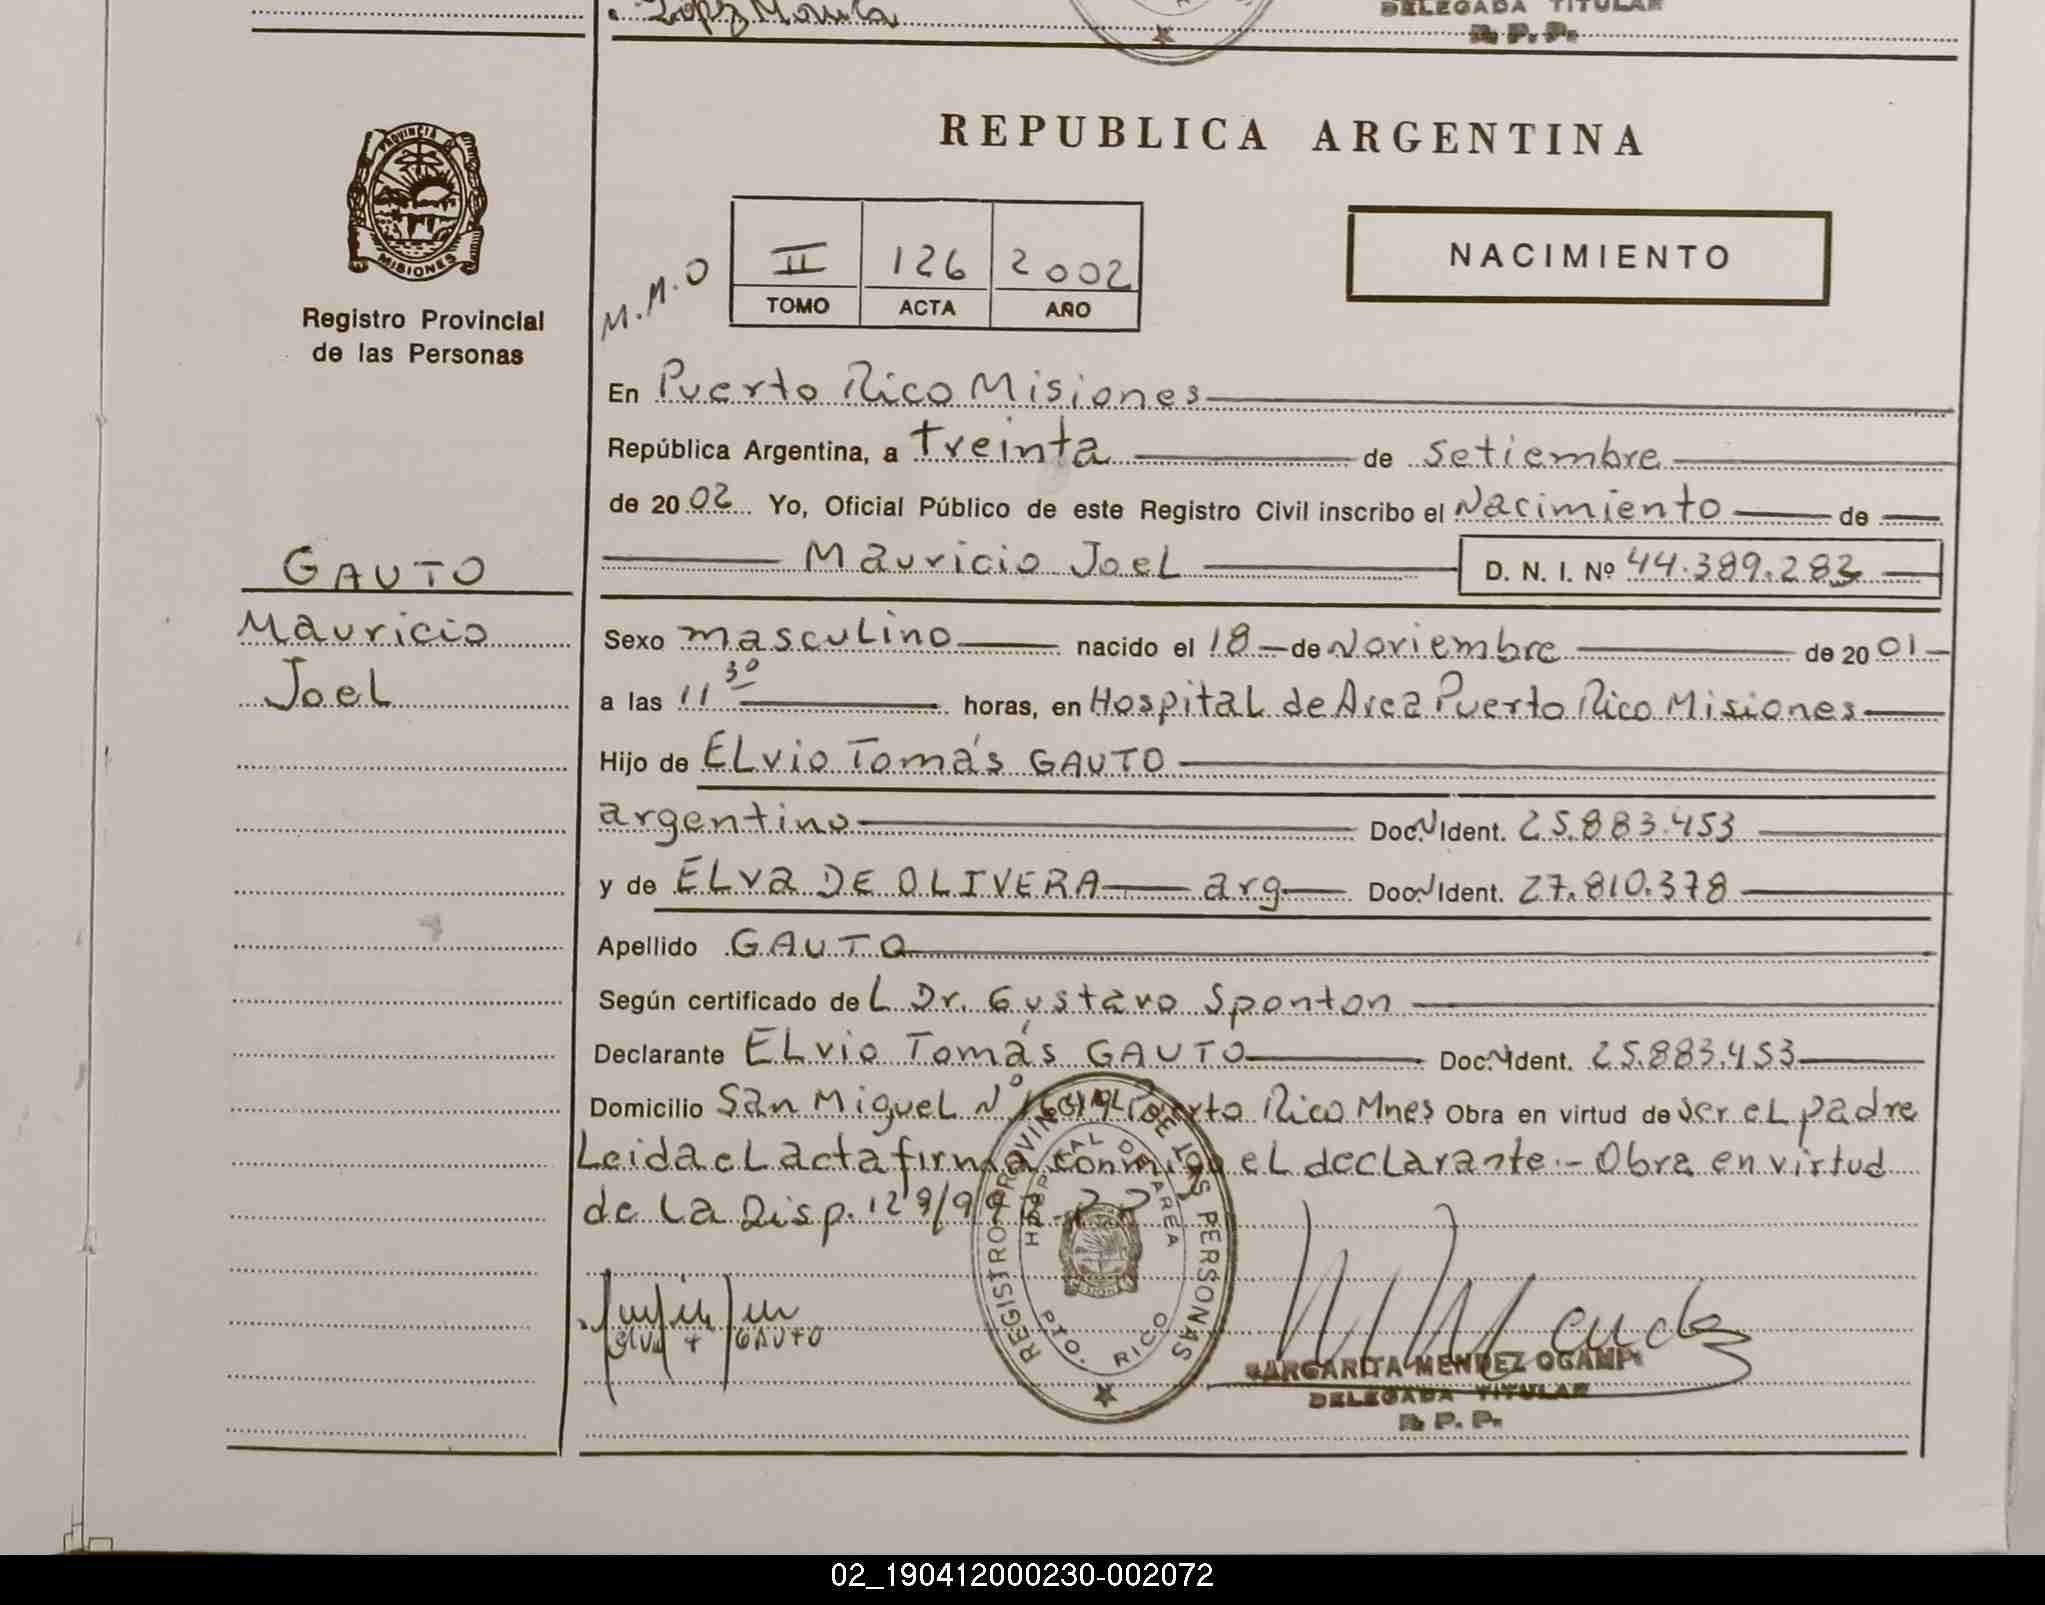 López Mónica
DELEGADA TITULAR
R. P. P.
PROVINCIA
MISIONES
Registro Provincial
de las Personas
REPUBLICA ARGENTINA
M.M.O
II 126 2002
TOMO ACTA AÑO
NACIMIENTO
En Puerto Rico Misiones
República Argentina, a treinta de setiembre
de 2002 Yo, Oficial Público de este Registro Civil inscribo el Nacimiento de
Mauricio Joel D. N. I. Nº 44.389.283
GAUTO
Mauricio
Joel
Sexo masculino nacido el 18 de Noviembre de 2001
a las 11 30 horas, en Hospital de Area Puerto Rico Misiones
Hijo de Elvio Tomás GAUTO
argentino Doc. N Ident. 25.883.453
y de ELVA DE OLIVERA arg Doc. N Ident. 27.810.378
Apellido GAUTO
Según certificado del Dr. Gustavo Sponton
Declarante Elvio Tomás GAUTO Doc. N Ident. 25.883.453
Domicilio San Miguel Nº Puerto Rico Mnes Obra en virtud de ser el padre
Leida el acta firma conmigo el declarante.- Obra en virtud
de la Disp.
REGISTRO PROVINCIAL DE LAS PERSONAS
HOSPITAL DE AREA
PTO. RICO
GAUTO
MARGARITA MENDEZ OCAMPO
DELEGADA TITULAR
R. P. P.
02_190412000230-002072